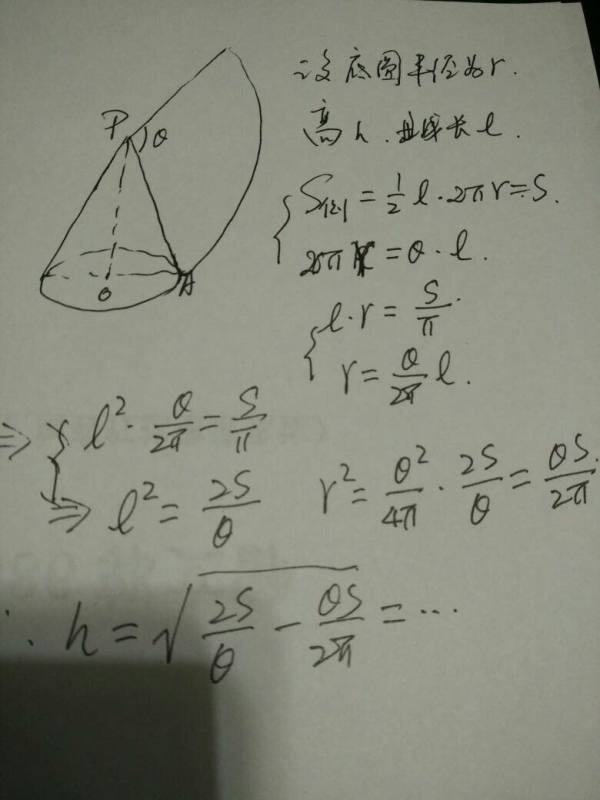 设底圆半径为r.
高h.母线长l.
P
θ
S侧=1/2 l·2πr=S.
2πr=θ·l.
O
A
l·r=S/π.
r=θ/2π l.
⇒ l²·θ/2π=S/π
⇒ l²=2S/θ r²=θ²/4π·2S/θ=θS/2π.
∴h=√(2S/θ-θS/2π)=…